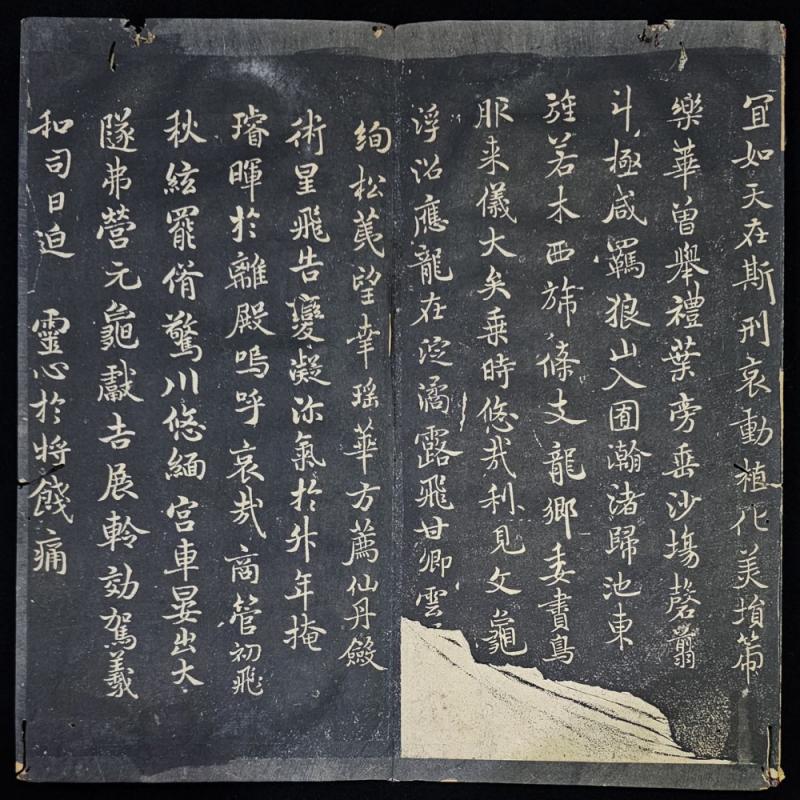 冝如天在斯刑哀動植化美塤箒
樂華曾舉禮葉旁垂沙塲罄翦
斗極咸羈狼山入囿瀚渚歸池東
旌若木西旆條支龍鄉委賮鳥
服来儀大矣乗時悠哉利見文龜
浮沿應龍在淀潏露飛甘卿雲
絢松荑望幸瑶華方薦仙丹斂
術星飛告變凝沴氣於升年掩
璿暉於離殿嗚呼哀哉商管初飛
秋絃罷脩驚川悠緬宫車晏出大
隧弗營元龜獻吉展軨効駕羲
和司日迫 靈心於将餞痛